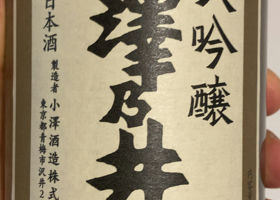 大吟醸
澤乃井
日本酒
製造者 小澤酒造株式
東京都青梅市沢井2